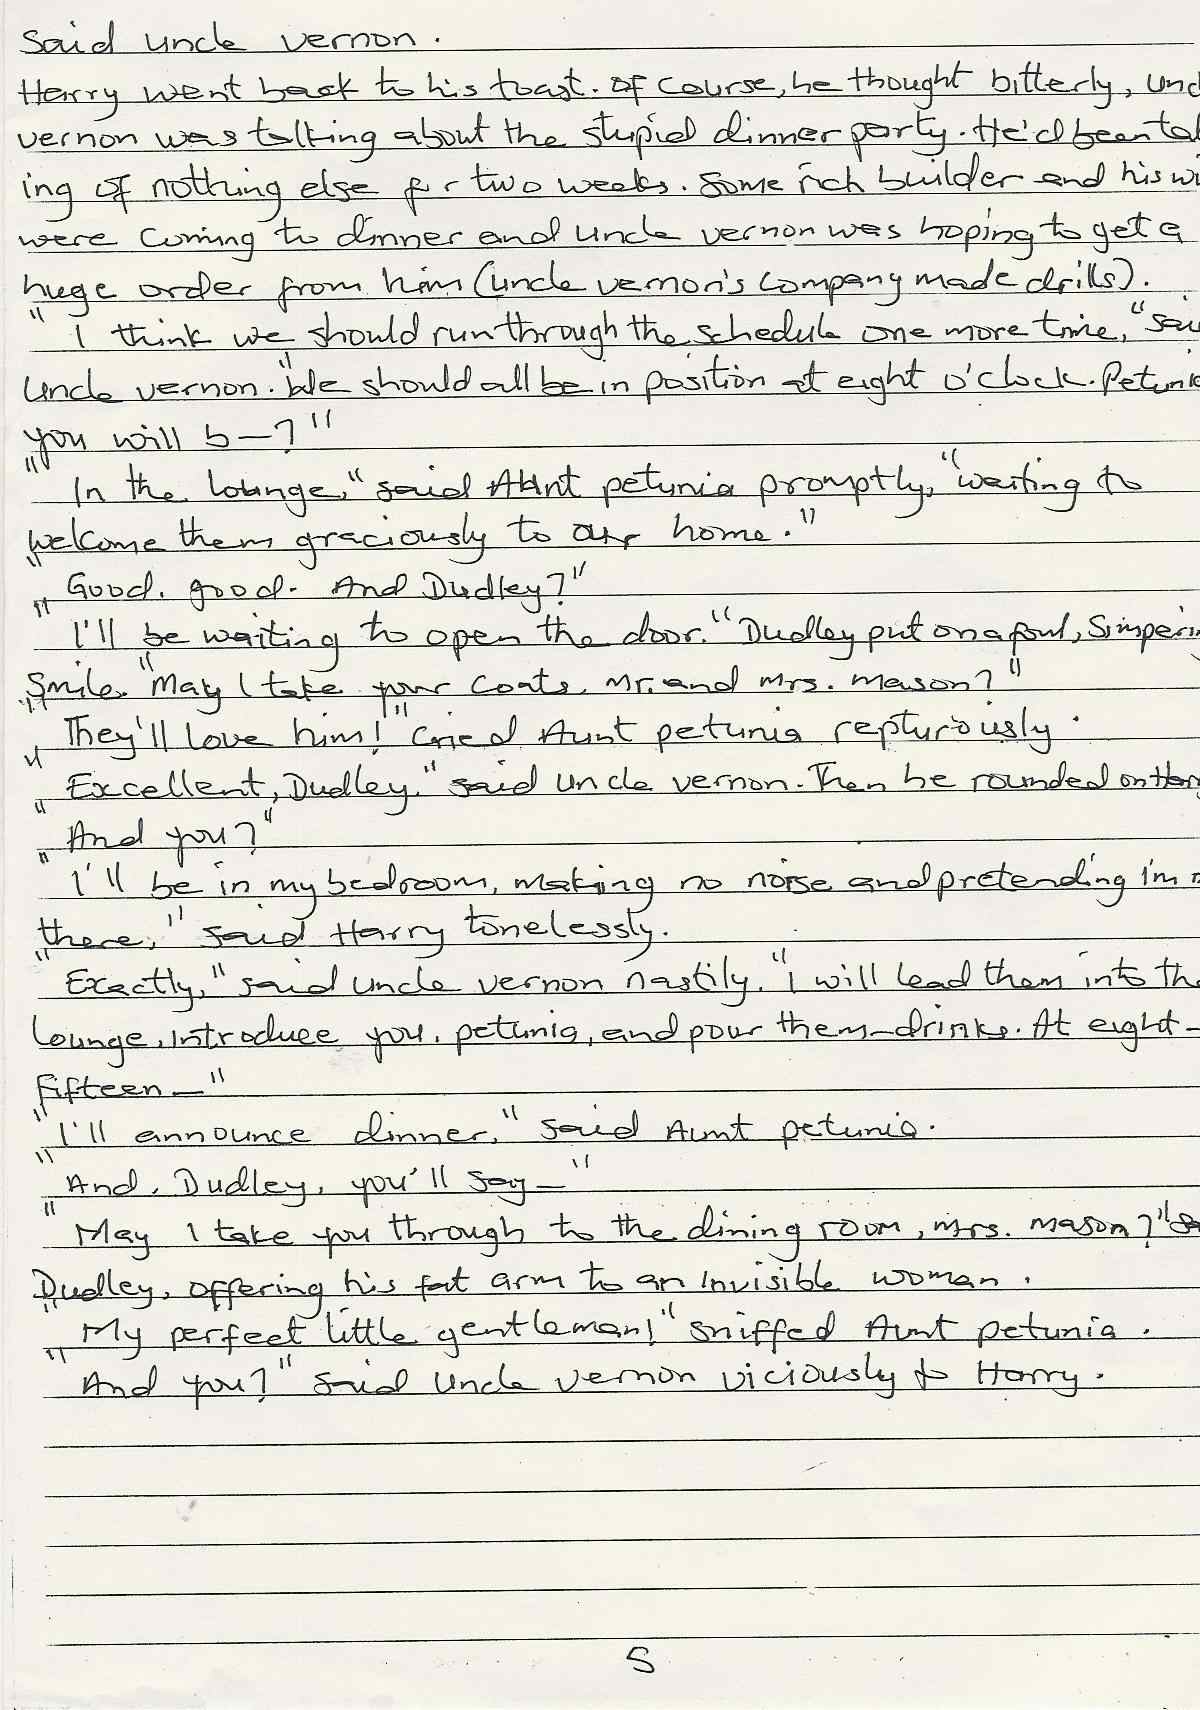 Said uncle vernon.
Harry went back to his toast. Of course, he thought bitterly, Unc
vernon was talking about the stupid dinner party. He'd been tal
ing of nothing else for two weeks. Some rich builder and his wi
were coming to dinner and uncle vernon was hoping to get a
huge order from him (uncle vernon's company made drills).
"I think we should run through the schedule one more time," sai
Uncle vernon. "We should all be in position at eight o'clock. Petunia
you will b—?"
"In the lounge," said Aunt petunia promptly, "waiting to
welcome them graciously to our home."
"Good, good. And Dudley?"
"I'll be waiting to open the door." Dudley put on a foul, Simperin
Smile. "May I take your coats, Mr. and Mrs. Mason?"
"They'll love him!" cried Aunt petunia repturiously.
"Excellent, Dudley," said uncle vernon. Then he rounded on Harry
"And you?"
"I'll be in my bedroom, making no noise and pretending I'm n
there," said Harry tonelessly.
"Exactly," said uncle vernon nastily. "I will lead them into the
lounge, introduce you, petunia, and pour them—drinks. At eight-
fifteen—"
"I'll announce dinner," said Aunt petunia.
"And, Dudley, you'll say—"
"May I take you through to the dining room, Mrs. Mason?" Sa
Dudley, offering his fat arm to an invisible woman.
"My perfect little gentleman!" sniffed Aunt petunia.
"And you?" said uncle vernon viciously to Harry.
5